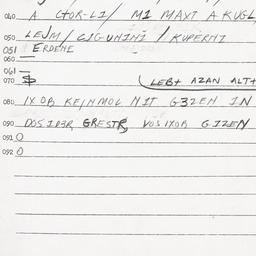 040 A
050 LEJM/ CIGUHINI / KUPERHI
051 ERDENE
060 —
061 —
070 LEB+ AZAN ALT+
080 IX OB KEINMOL NIT G3ZEN IN
090 DOSIDER GRESTR, VOS IXOB GIZEN
091 0
092 0